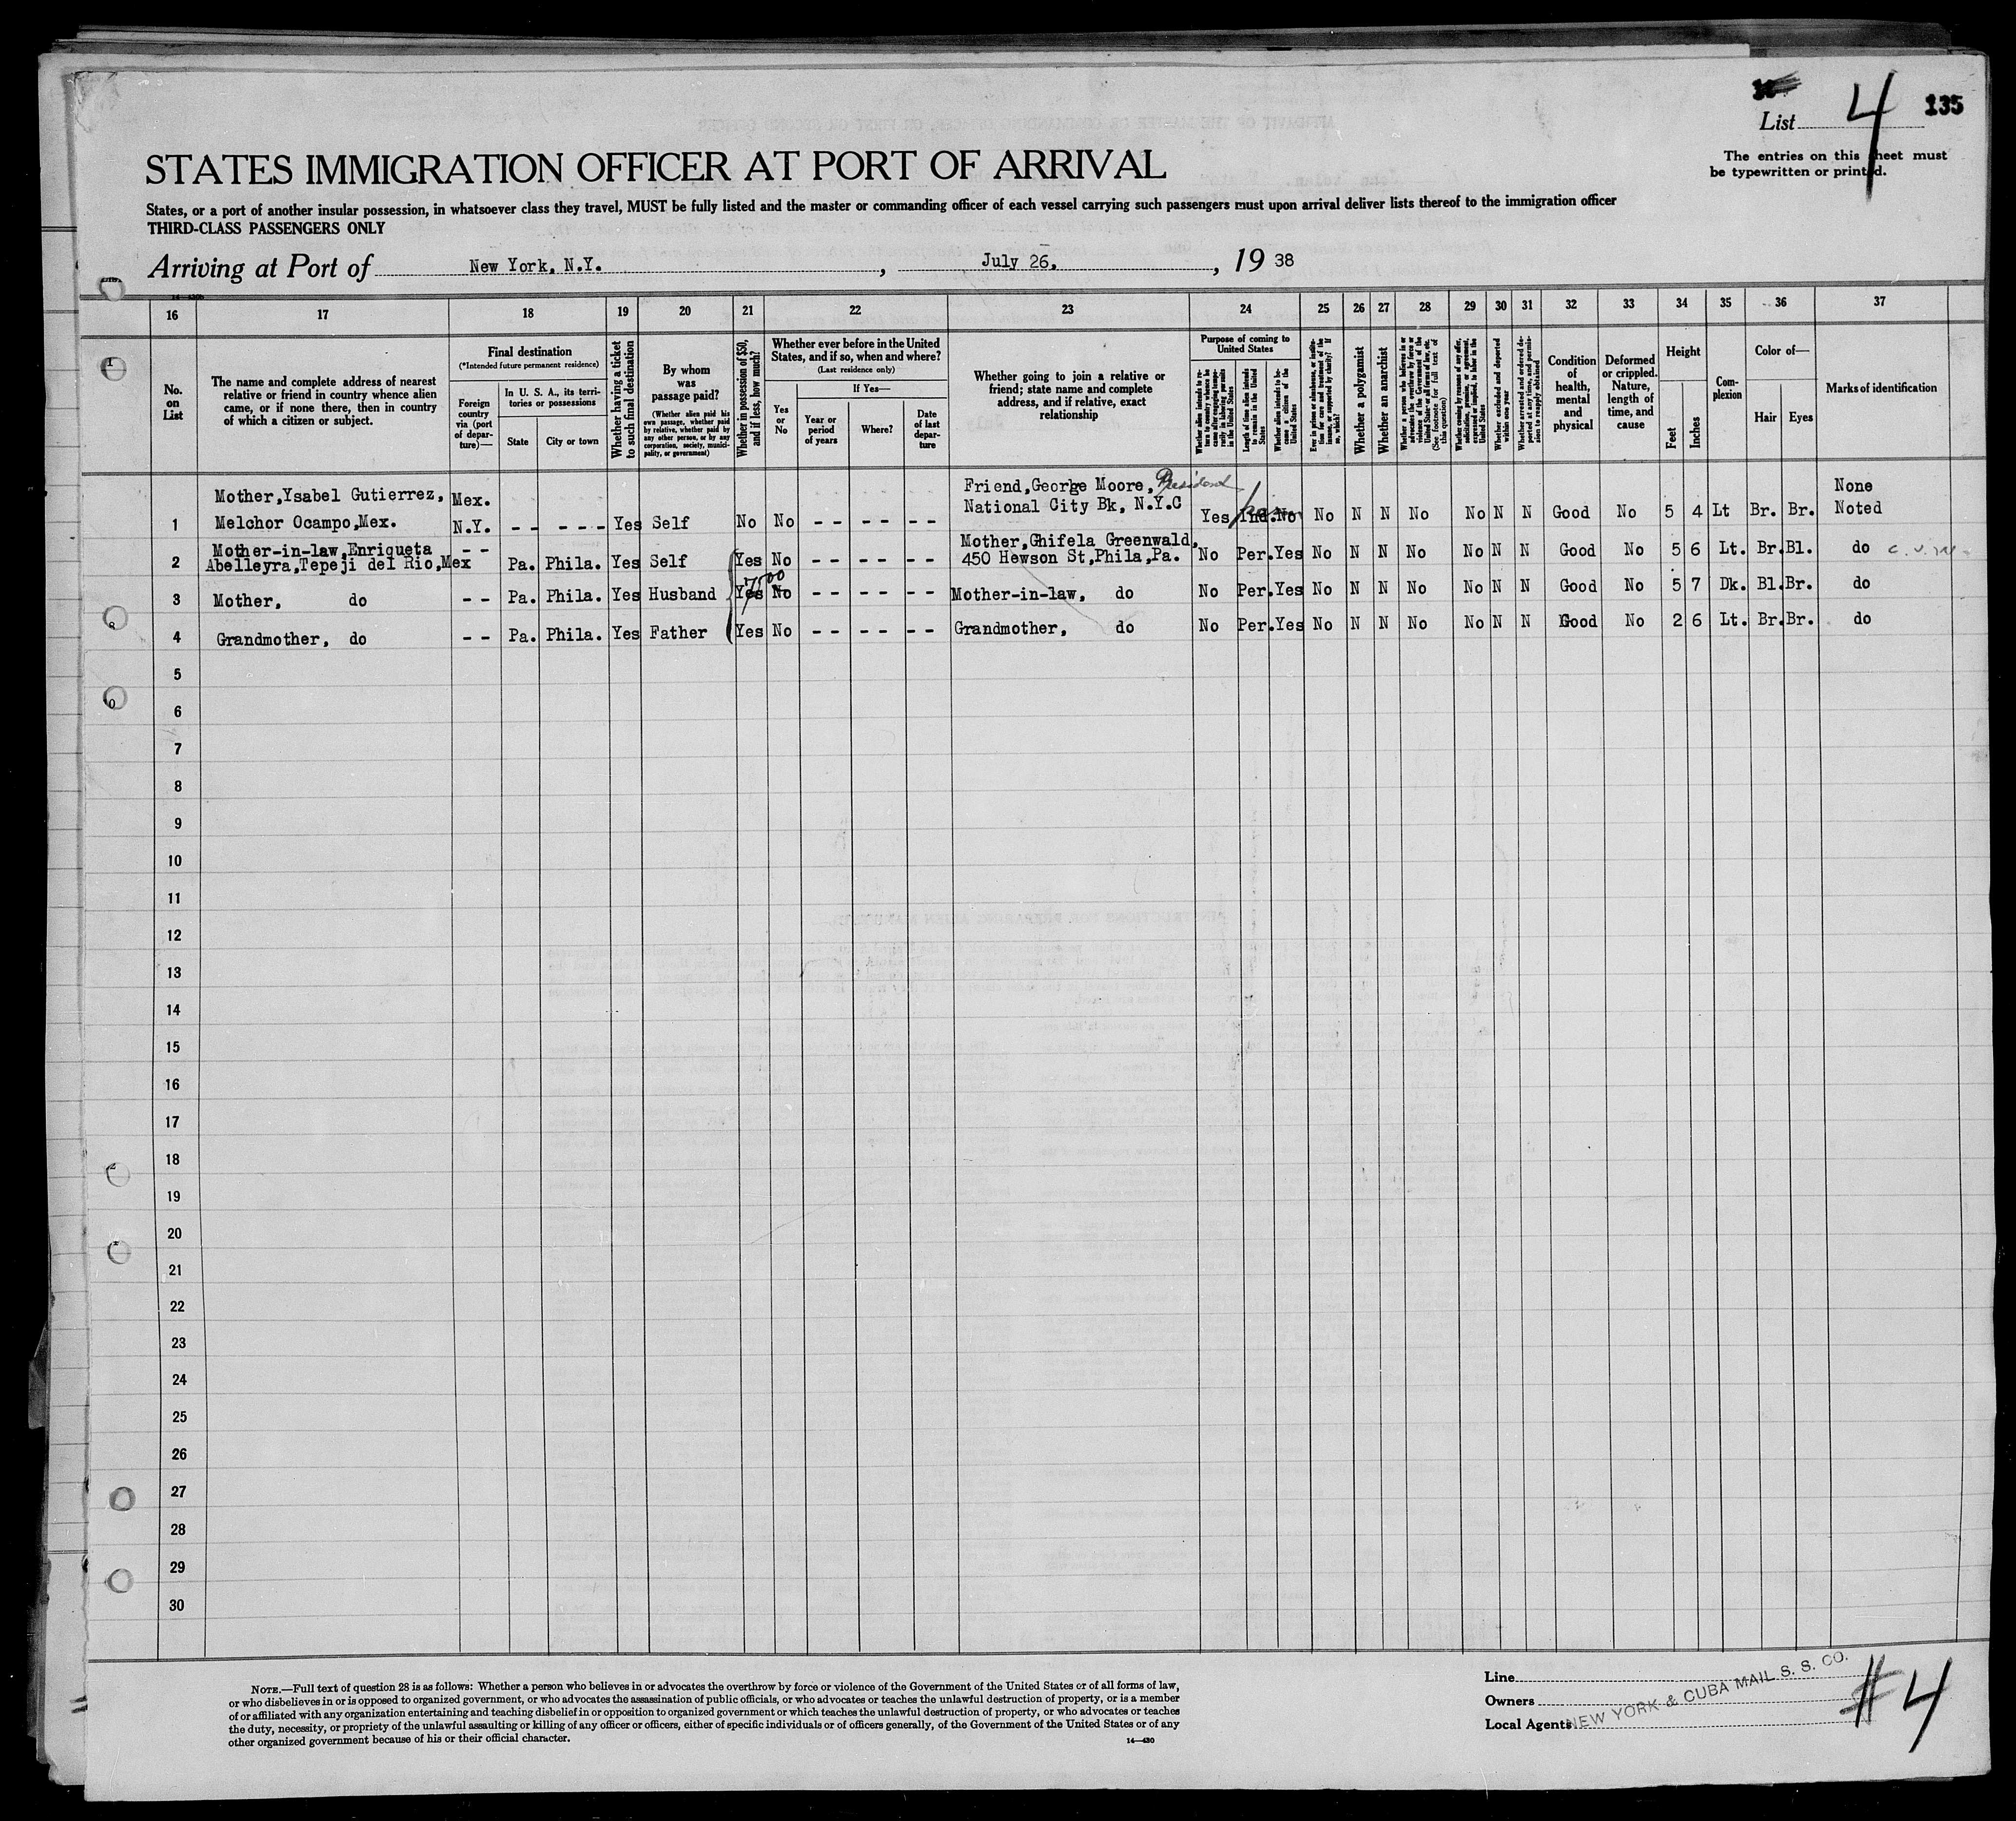 List 4 135
The entries on this sheet must
be typewritten or printed.
STATES IMMIGRATION OFFICER AT PORT OF ARRIVAL
States, or a port of another insular possession, in whatsoever class they travel, MUST be fully listed and the master or commanding officer of each vessel carrying such passengers must upon arrival deliver lists thereof to the immigration officer
THIRD-CLASS PASSENGERS ONLY
Arriving at Port of New York, N.Y. , July 26, , 19 38
16 17 18 19 20 21 22 23 24 25 26 27 28 29 30 31 32 33 34 35 36 37
No.
on
List
The name and complete address of nearest
relative or friend in country whence alien
came, or if none there, then in country
of which a citizen or subject.
Final destination
(*Intended future permanent residence)
Foreign
country
via (port
of depar-
ture)—
In U. S. A., its terri-
tories or possessions
State
City or town
Whether having a ticket
to such final destination
By whom
was
passage paid?
(Whether alien paid his
own passage, whether paid
by relative, whether paid by
any other person, or by any
corporation, society, munici-
pality, or government)
Whether in possession of $50,
and if less, how much?
Whether ever before in the United
States, and if so, when and where?
(Last residence only)
Yes
or
No
If Yes—
Year or
period
of years
Where?
Date
of last
depar-
ture
Whether going to join a relative or
friend; state name and complete
address, and if relative, exact
relationship
Purpose of coming to
United States
Length of time alien intends
to remain in the United
States
Whether alien intends to be-
come a citizen of the
United States
Whether a polygamist
Whether an anarchist
Whether excluded and deported
within one year
Whether arrested and ordered de-
ported at any time, and permis-
sion to reapply obtained
Condition
of
health,
mental
and
physical
Deformed
or crippled.
Nature,
length of
time, and
cause
Height
Feet
Inches
Com-
plexion
Color of—
Hair
Eyes
Marks of identification
Mother,Ysabel Gutierrez, Mex. Friend,George Moore, President None
1 Melchor Ocampo,Mex. N.Y. -- --- Yes Self No No -- -- -- National City Bk, N.Y.C Yes Ind. No No N N No No N N Good No 5 4 Lt Br. Br. Noted
Mother-in-law,Enriqueta -- Mother,Ghifela Greenwald,
2 Abelleyra,Tepeji del Rio,Mex Pa. Phila. Yes Self Yes No -- -- -- 450 Hewson St,Phila,Pa. No Per. Yes No N N No No N N Good No 5 6 Lt. Br. Bl. do
3 Mother, do -- Pa. Phila. Yes Husband Yes No -- -- -- Mother-in-law, do No Per. Yes No N N No No N N Good No 5 7 Dk. Bl. Br. do
4 Grandmother, do -- Pa. Phila. Yes Father Yes No -- -- -- Grandmother, do No Per. Yes No N N No No N N Good No 2 6 Lt. Br. Br. do
5
6
7
8
9
10
11
12
13
14
15
16
17
18
19
20
21
22
23
24
25
26
27
28
29
30
NOTE.—Full text of question 28 is as follows: Whether a person who believes in or advocates the overthrow by force or violence of the Government of the United States or of all forms of law,
or who disbelieves in or is opposed to organized government, or who advocates the assassination of public officials, or who advocates or teaches the unlawful destruction of property, or is a member
of or affiliated with any organization entertaining and teaching disbelief in or opposition to organized government or which teaches the unlawful destruction of property, or who advocates or teaches
the duty, necessity, or propriety of the unlawful assaulting or killing of any officer or officers, either of specific individuals or of officers generally, of the Government of the United States or of any
other organized government because of his or their official character.
14—430
Line
Owners
Local Agents
NEW YORK & CUBA MAIL S. S. CO.
#4